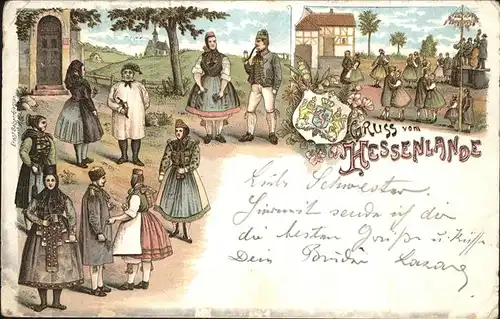 Gruss vom
Hessenlande
Liebe Schwester.
Hiermit sende ich dir
die besten Grüße u. Küsse
Dein Bruder